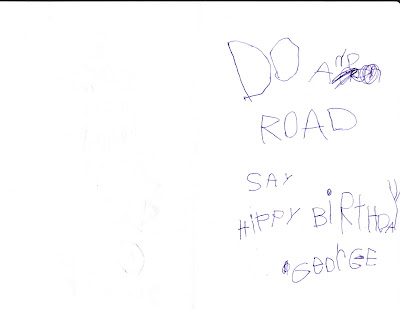 DO AND
ROAD
SAY
HIPPY BiRtHDAY
GEOrGE